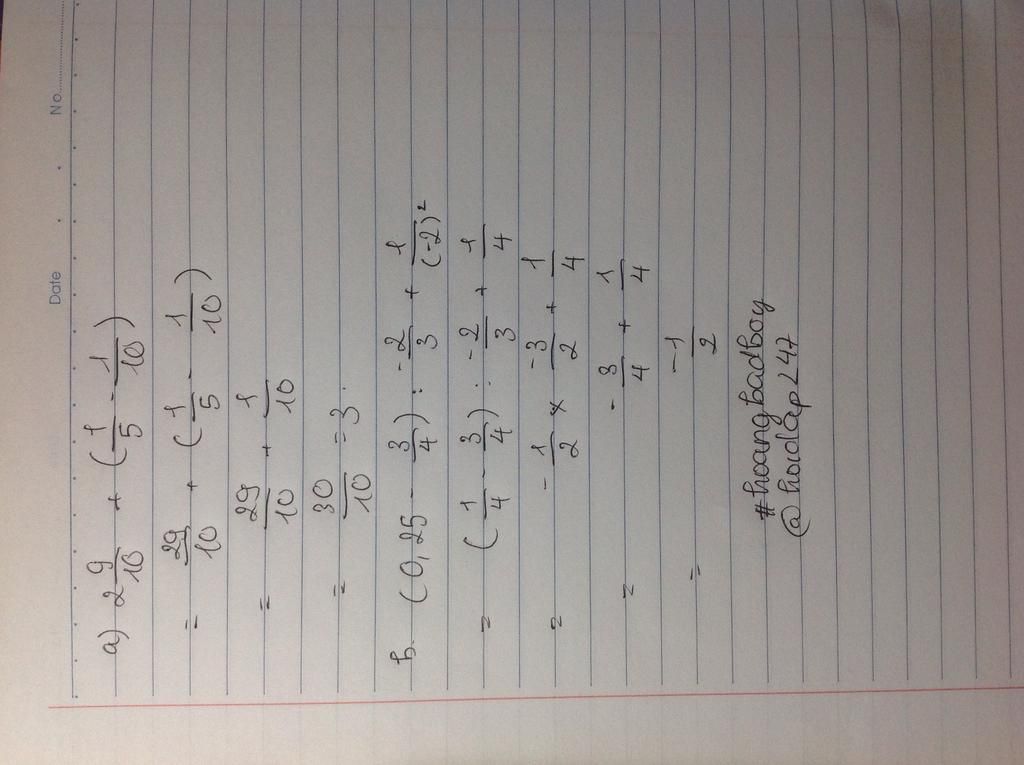 Date No
a) 2 9/10 + (1/5 - 1/10)
= 29/10 + (1/5 - 1/10)
= 29/10 + 1/10
= 30/10 = 3.
b. (0,25 - 3/4) : -2/3 + 1/(-2)²
= (1/4 - 3/4) : -2/3 + 1/4
= -1/2 x -3/2 + 1/4
= -3/4 + 1/4
= -1/2
#hoangbadboy
@hoidap247